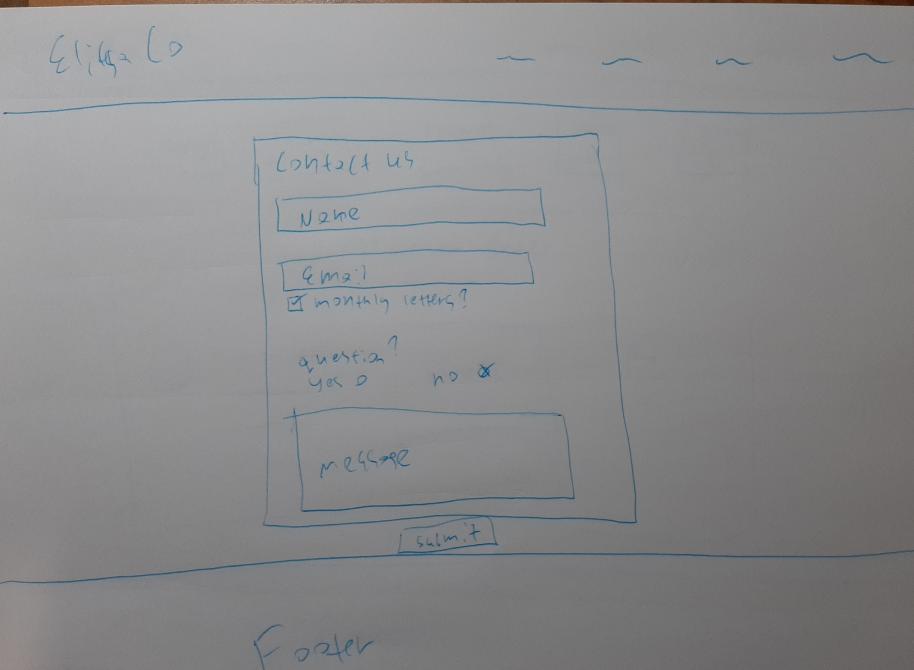 Co
Contact us
Name
Email
monthly letters?
question?
yes no
message
submit
Footer